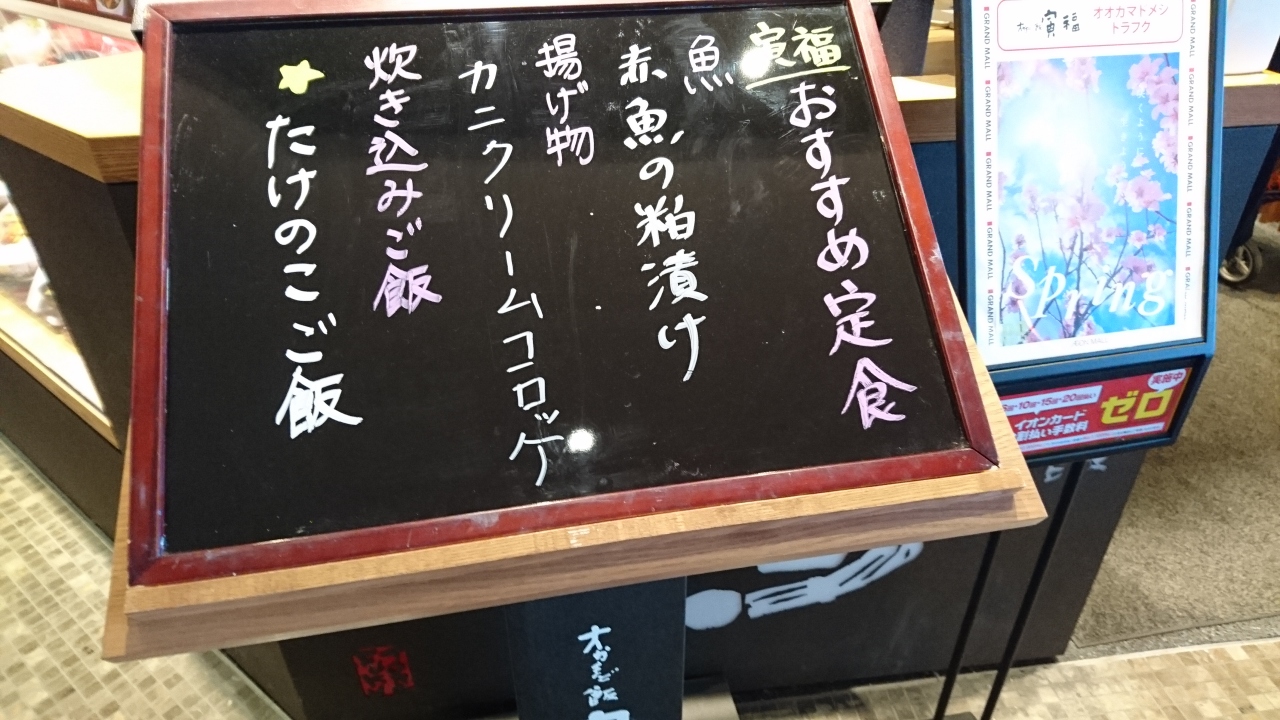 寅福おすすめ定食
魚
赤魚の粕漬け
揚げ物
カニクリームコロッケ
炊き込みご飯
★たけのこご飯
寅福
オオカマトメシ
トラフク
GRAND MALL
Spring
実施中
イオンカード
割払い手数料
ゼロ